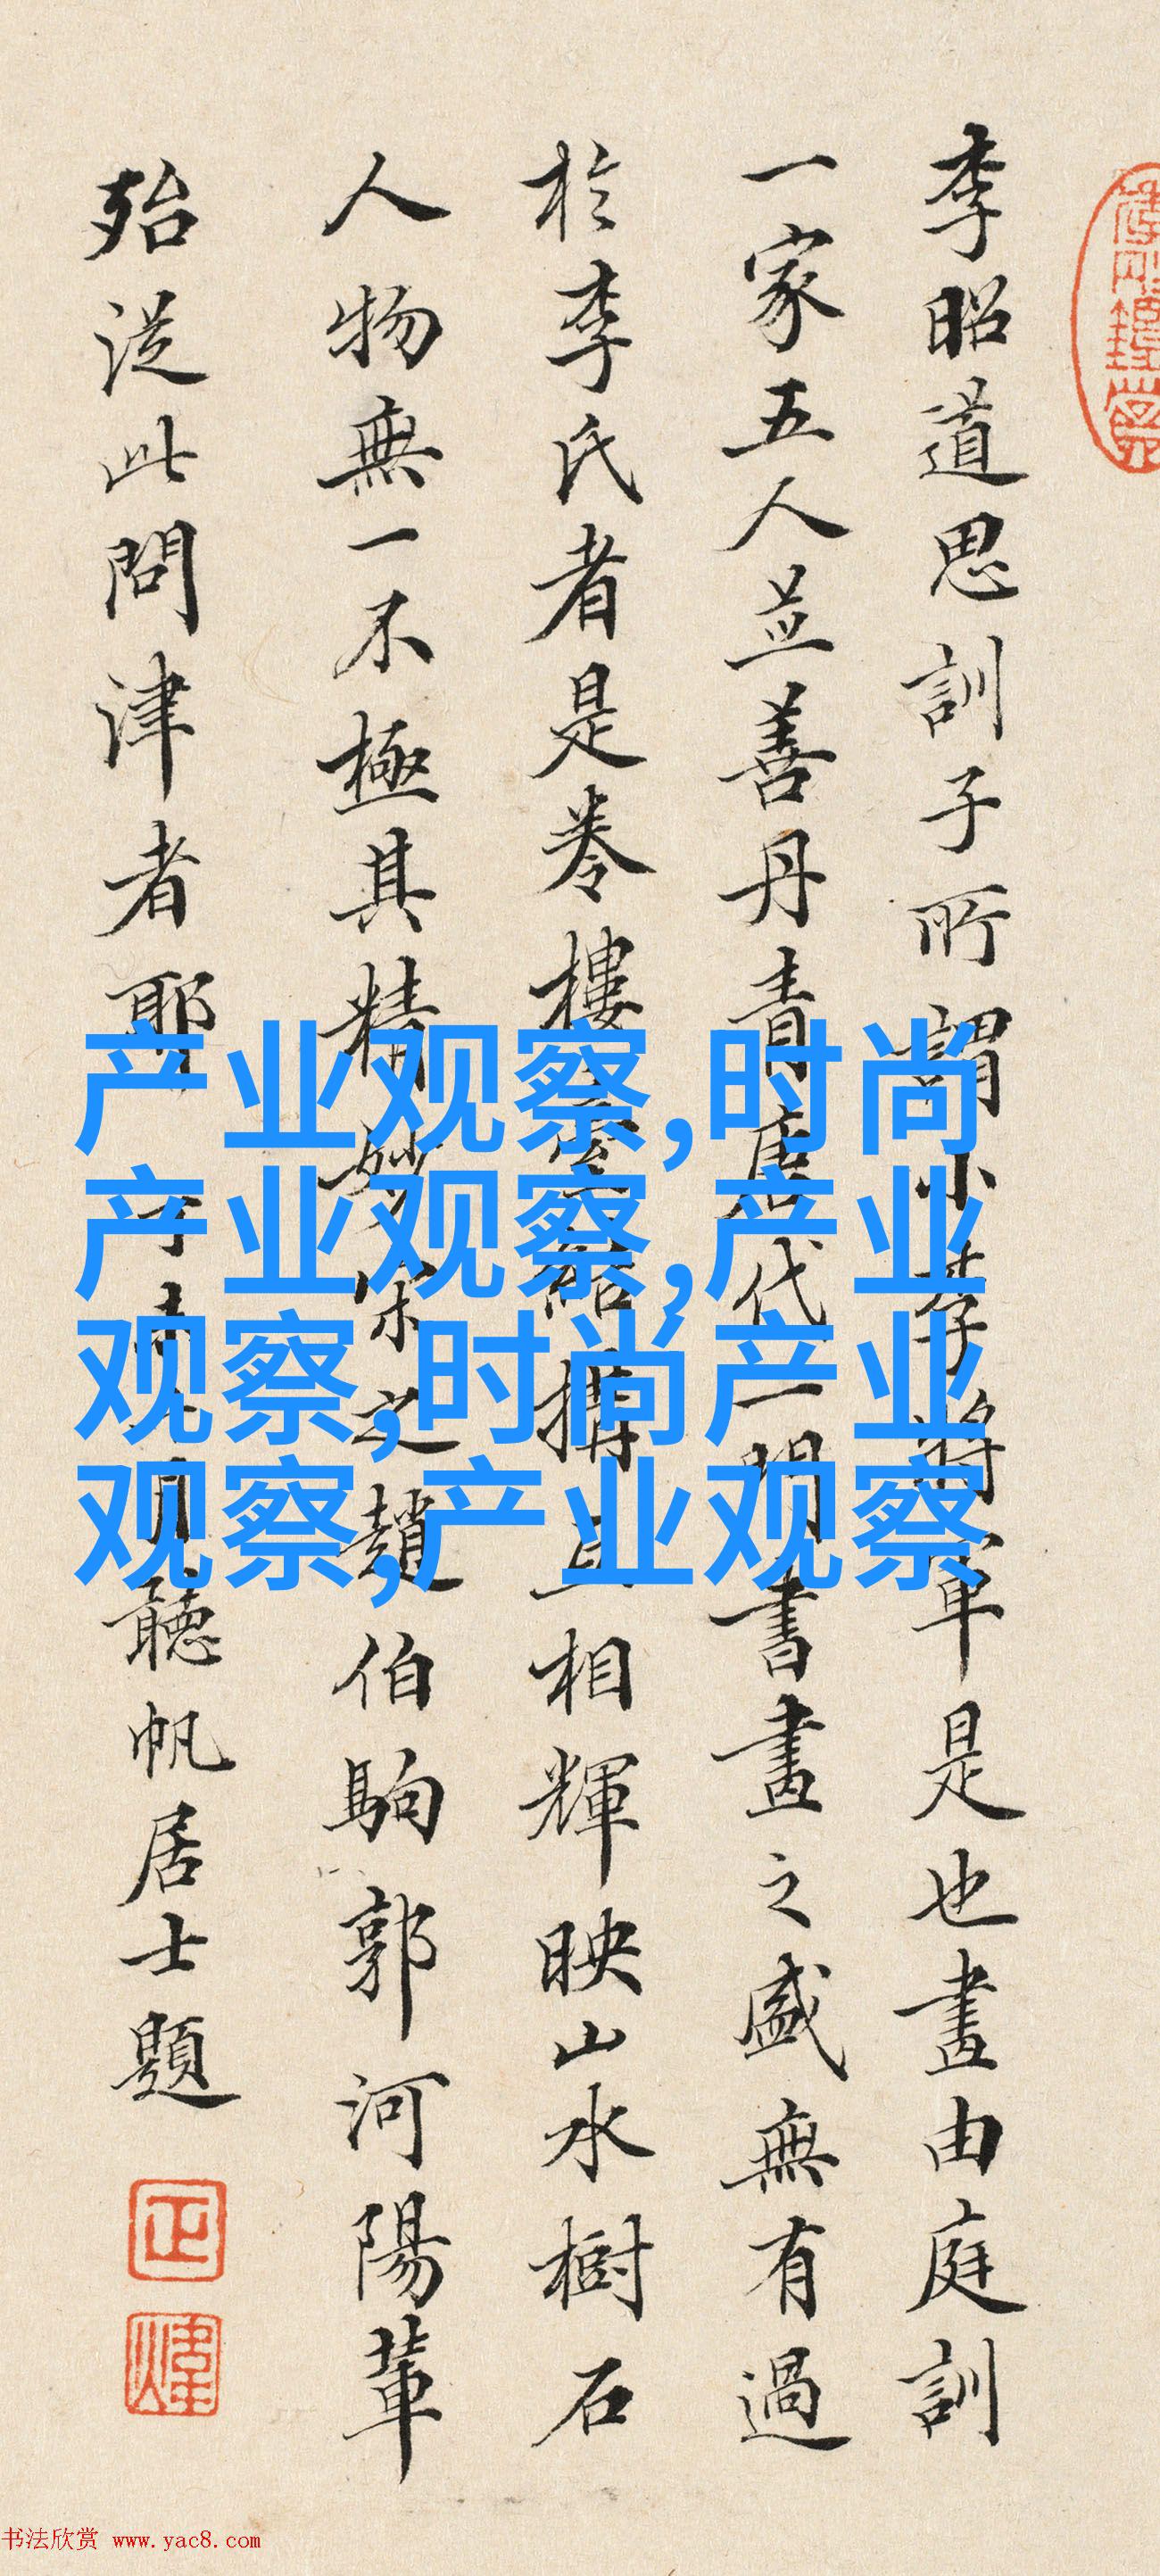 李昭道思訓子所謂小李將軍是也畫由庭訓
一家五人並善丹青唐代一門書畫之盛無有過
於李氏者是卷樓臺結構互相輝映山水樹石
人物無一不極其精妙宋之趙伯駒郭河陽輩
殆從此問津者耶 聽帆居士題
正
煒
产业观察,时尚
产业观察,产业
观察,时尚产业
观察,产业观察
书法欣赏 www.yac8.com